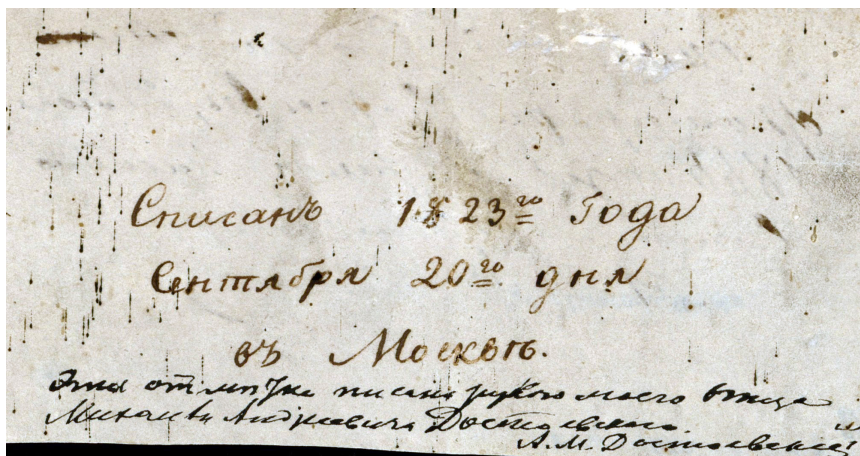 Списанъ 1823го Года
Сентября 20го дня
въ Москвѣ.
Эта отмѣтка писана рукою моего отца
Михаила Андреевича Достоевскаго.
А. М. Достоевскій